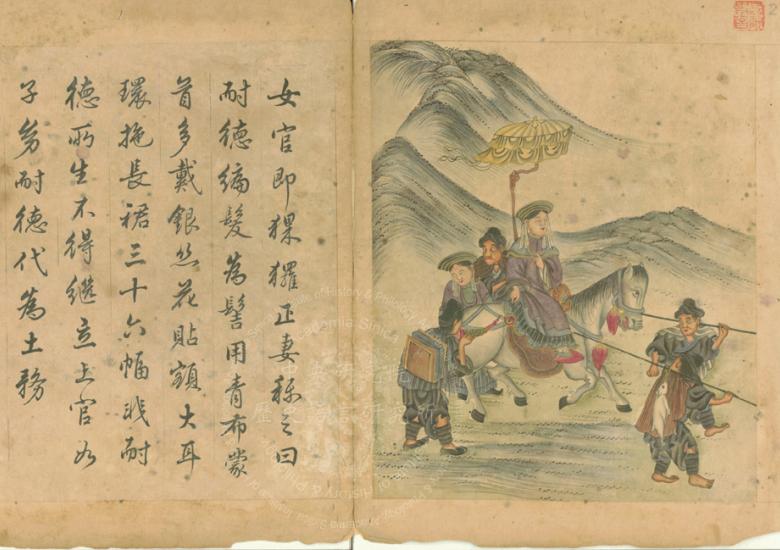 女官即猓玀正妻称之曰
耐德編髮為髻用青布蒙
首多戴銀絲花貼額大耳
環拖長裙三十六幅非耐
德所生不得継立土官如
子幼耐德代為土務
Institute of History & Philology
Academia Sinica